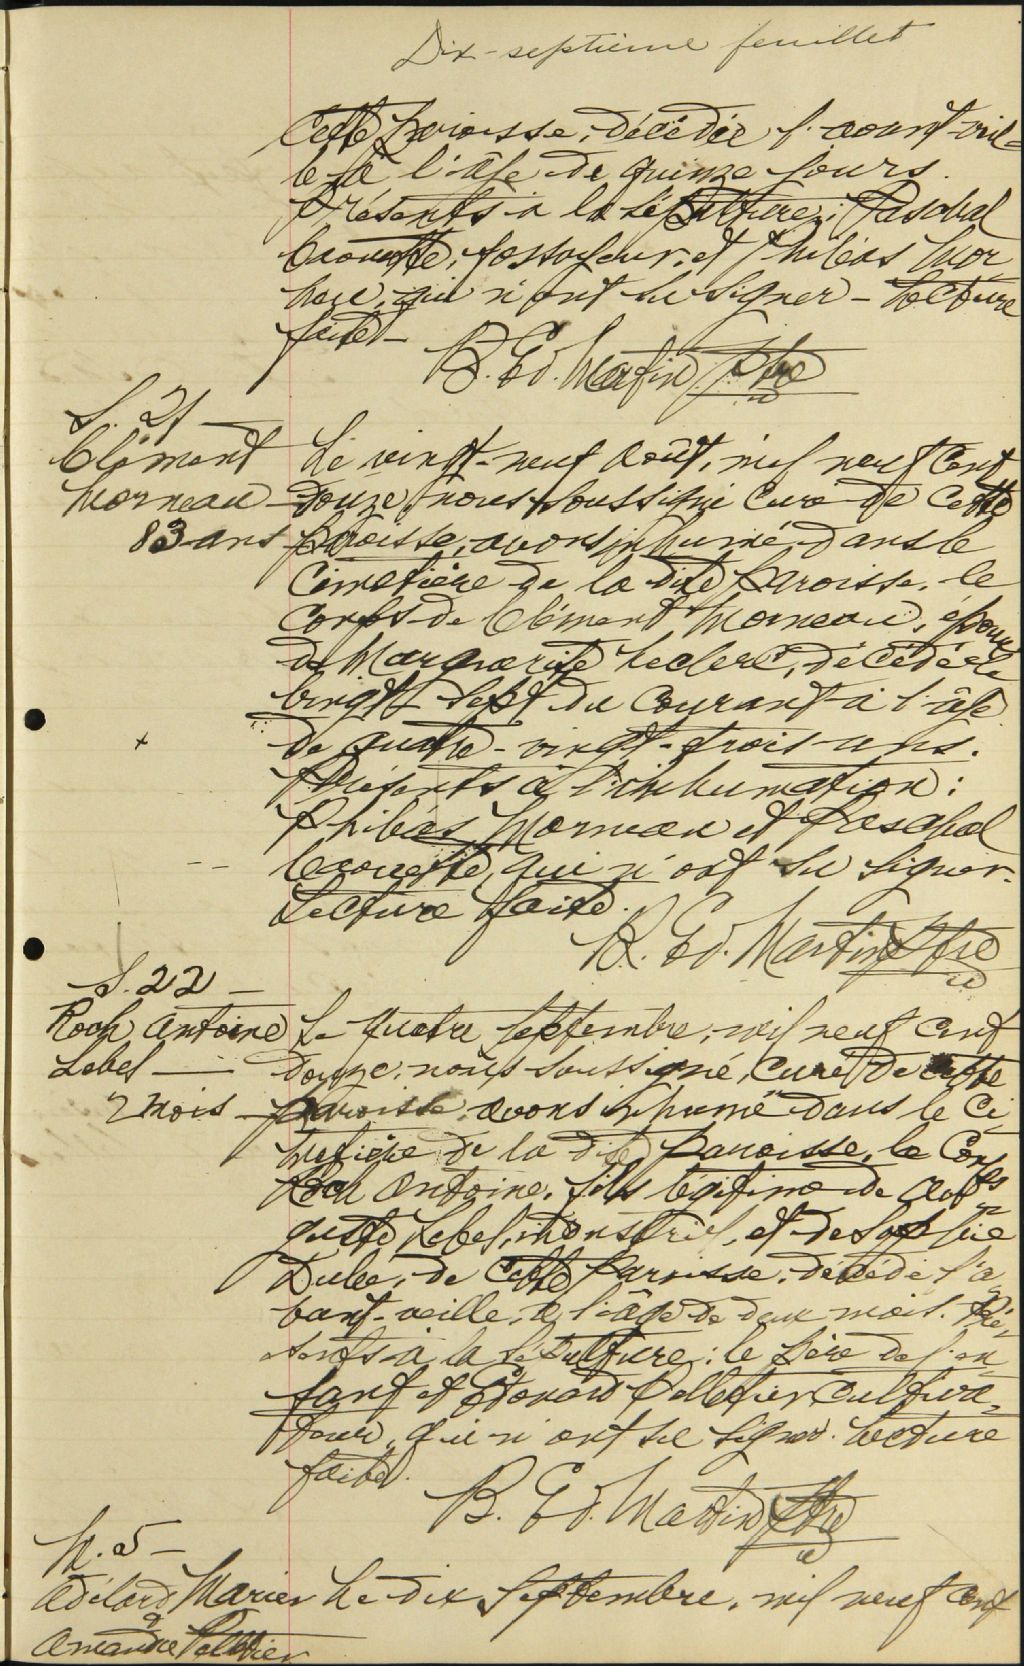 Dix-septième feuillet
cette paroisse, décédée l'avant-veil-
le à l'âge de quinze jours.
Présents à la sépulture: Paschal
fossoyeur, et Philéas Mor
neau, qui n'ont su signer - Lecture
faite -
B. Ed. Martin Ptre
S. 21
Clément
Morneau
83 ans
Le vingt-neuf Août, mil neuf cent
douze, nous soussigné Curé de cette
paroisse, avons inhumé dans le
Cimetière de la dite paroisse, le
Corps de Clément Morneau, époux
de Marguerite Leclerc, décédé le
vingt sept du courant à l'âge
de quatre-vingt-trois ans.
Présents à l'inhumation:
Philéas Morneau et Paschal
qui n'ont su signer.
Lecture faite.
B. Ed. Martin Ptre
S. 22 -
Roch Antoine
Lebel —
2 mois -
Le quatre Septembre, mil neuf cent
douze, nous soussigné, Curé de cette
paroisse avons inhumé dans le Ci
metière de la dite paroisse, le Corps
Roch Antoine, fils légitime de Au
guste Lebel, industriel, et de Sophie
Dubé, de cette paroisse, décédé l'a
vant-veille, à l'âge de deux mois. Pré-
sents à la sépulture: le père de l'en
fant et Edouard Pelletier cultiva-
teur, qui n'ont su signer. Lecture
faite.
B. Ed. Martin Ptre
M. 5 -
Adélard Marier
&
Amanda Pelletier
Le dix Septembre, mil neuf cent